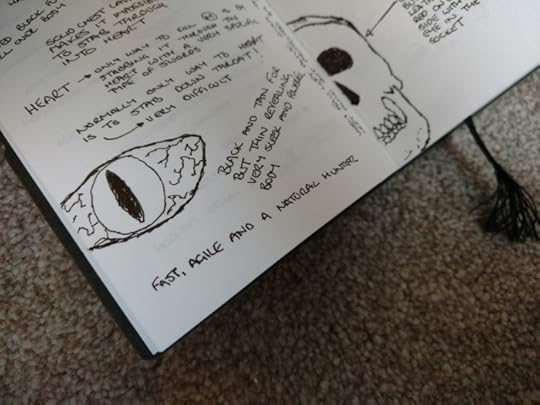 BLACK
OVER BODY
SOLID CHEST
MAKES IT
TO STAB THROUGH
INTO HEART
HEART → ONLY WAY TO KILL IS BY
STABBING IT THROUGH THE
HEART WITH A VERY SPECIAL
TYPE OF SWORD
NORMALLY ONLY WAY TO HEART
IS TO STAB DOWN THROAT!
→ VERY DIFFICULT
BLACK AND THIN FUR
BUT THIN REVEALING
VERY SLEEK AND
BODY
FAST, AGILE AND A NATURAL HUNTER
RED ON
SIDE WITH
EYE IN THE
SOCKET